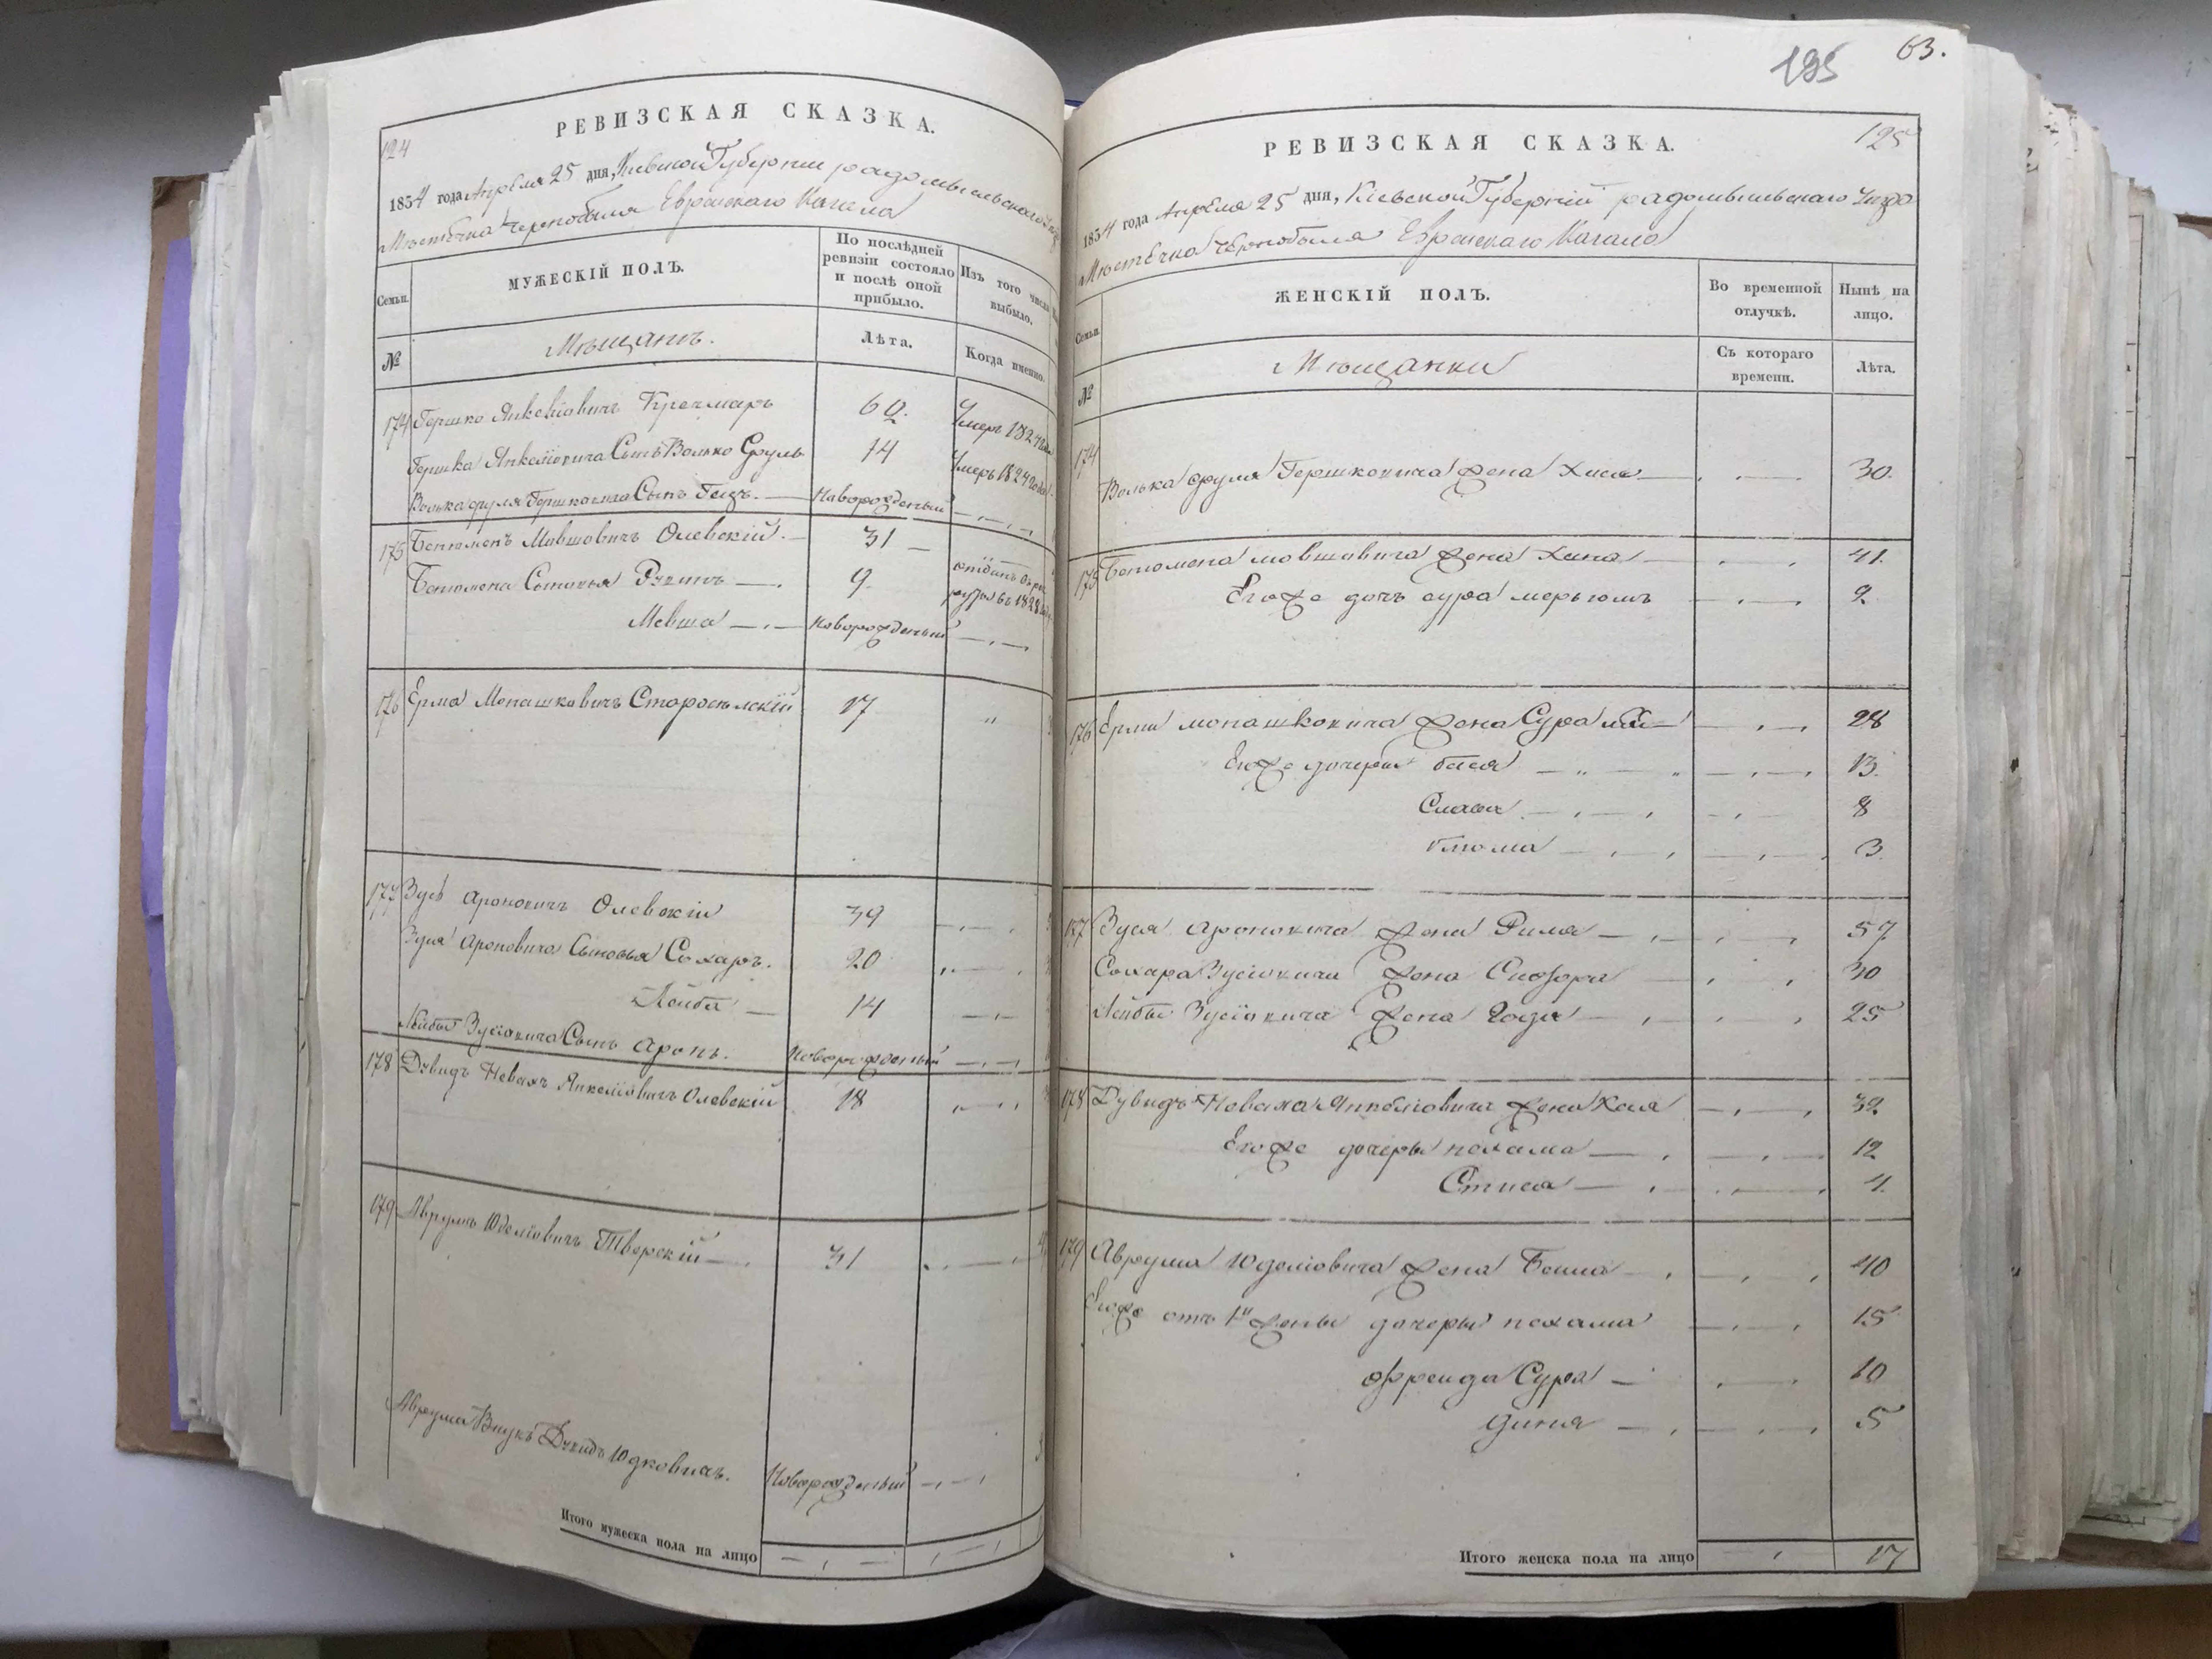 124
РЕВИЗСКАЯ СКАЗКА.
1834 года Апреля 25 дня, Кіевской Губерніи радомысльскаго
Местечка Чернобыля Еврейскаго Кагала
Семьи.
МУЖЕСКІЙ ПОЛЪ.
По послѣдней ревизіи состояло и послѣ оной прибыло.
Изъ того числа выбыло.
№
Мѣщанъ.
Лѣта.
Когда именно.
174 Гершко Янкеліовичъ Кречмаръ 60. Умеръ 1824 года
Гершка Янкеліовича Сынъ Волько Сруль 14 Умеръ 1824 года
Волька Сруля Гершковича Сынъ Гецъ. Новорожденый
175 Бенюменъ Мовшовичъ Олевскій. 31
Бенюмена Сыновья Рувинъ 9. отданъ въ рекруты въ 1828
Мовша Новорожденый
176 Ерма Монашковичъ Старосельскій 17 "
177 Зусь Ароновичъ Олевскій 39
Зуся Ароновича Сыновья Сохаръ. 20
Лейба 14
Лейбы Зусіовича Сынъ Аронъ. Новорожденый
178 Дувидъ Невахъ Янкеліовичъ Олевскій 18
179 Аврумъ Юделіовичъ Тверскій 31
Аврума Внукъ Дувидъ Юдковичъ. Новорожденый
Итого мужеска пола на лицо
195 63.
РЕВИЗСКАЯ СКАЗКА.
125
1834 года Апреля 25 дня, Кіевской Губерній радомысльскаго Уезда
Местечка Чернобыля Еврейскаго Кагала
Семьи.
ЖЕНСКІЙ ПОЛЪ.
Во временной отлучкѣ.
Нынѣ на лицо.
№
Мѣщанки
Съ котораго времени.
Лѣта.
174 Волька Сруля Гершковича жена Хися 30.
175 Бенюмена мовшовича жена Хана 41.
Егоже дочь сура мерьюмъ 2
176 Ерми монашковича жена Сура 28
Егоже дочери бася 13.
Слава 8
блюма 3.
177 Зуся Ароновича жена Рися 57
Сохара Зусіовича жена 30
Лейбы Зусіовича жена 25
178 Дувидъ Неваха Янкеліовича жена Хая 32
Егоже дочеры нехама 12
Стися 4.
179 Аврума Юделіовича жена Бейла 40
Егоже отъ 1й жены дочеры нехама 15
Фрейда Сура 10
диня 5
Итого женска пола на лицо 17